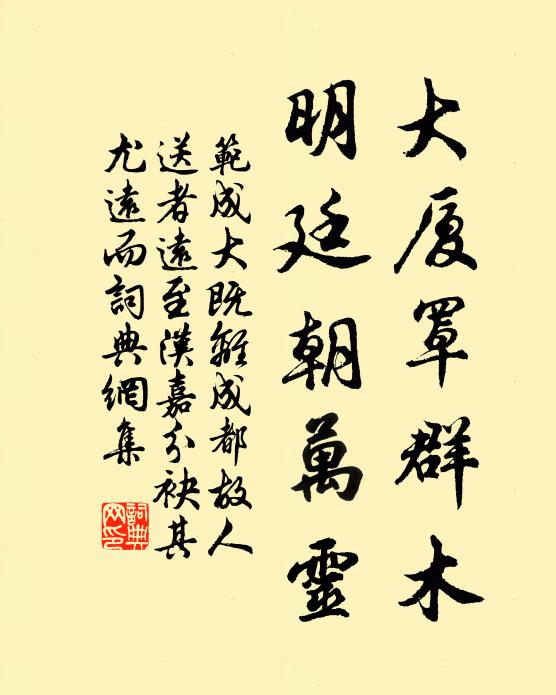 大厦罩群木
明廷朝萬靈
範成大既離成都故人
送者遠至漢嘉分袂其
尤遠而詞典網集
詞典
网印